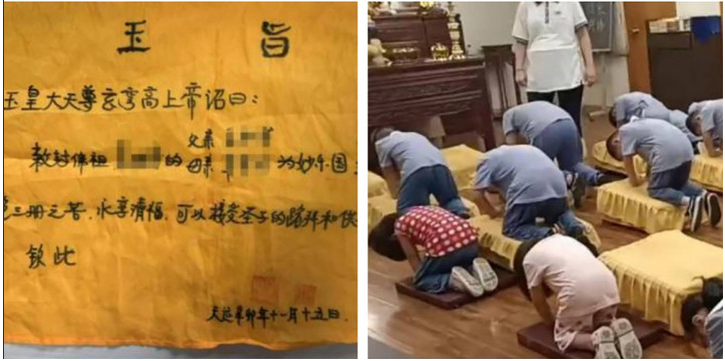 玉 旨
玉皇大天尊玄穹高上帝诏曰:
父亲
教封佛祖 的 母亲 为妙乐国
三册之苦,永享清福,可以接受圣子的跪拜和供
钦此
天运辛卯年十一月十五日.